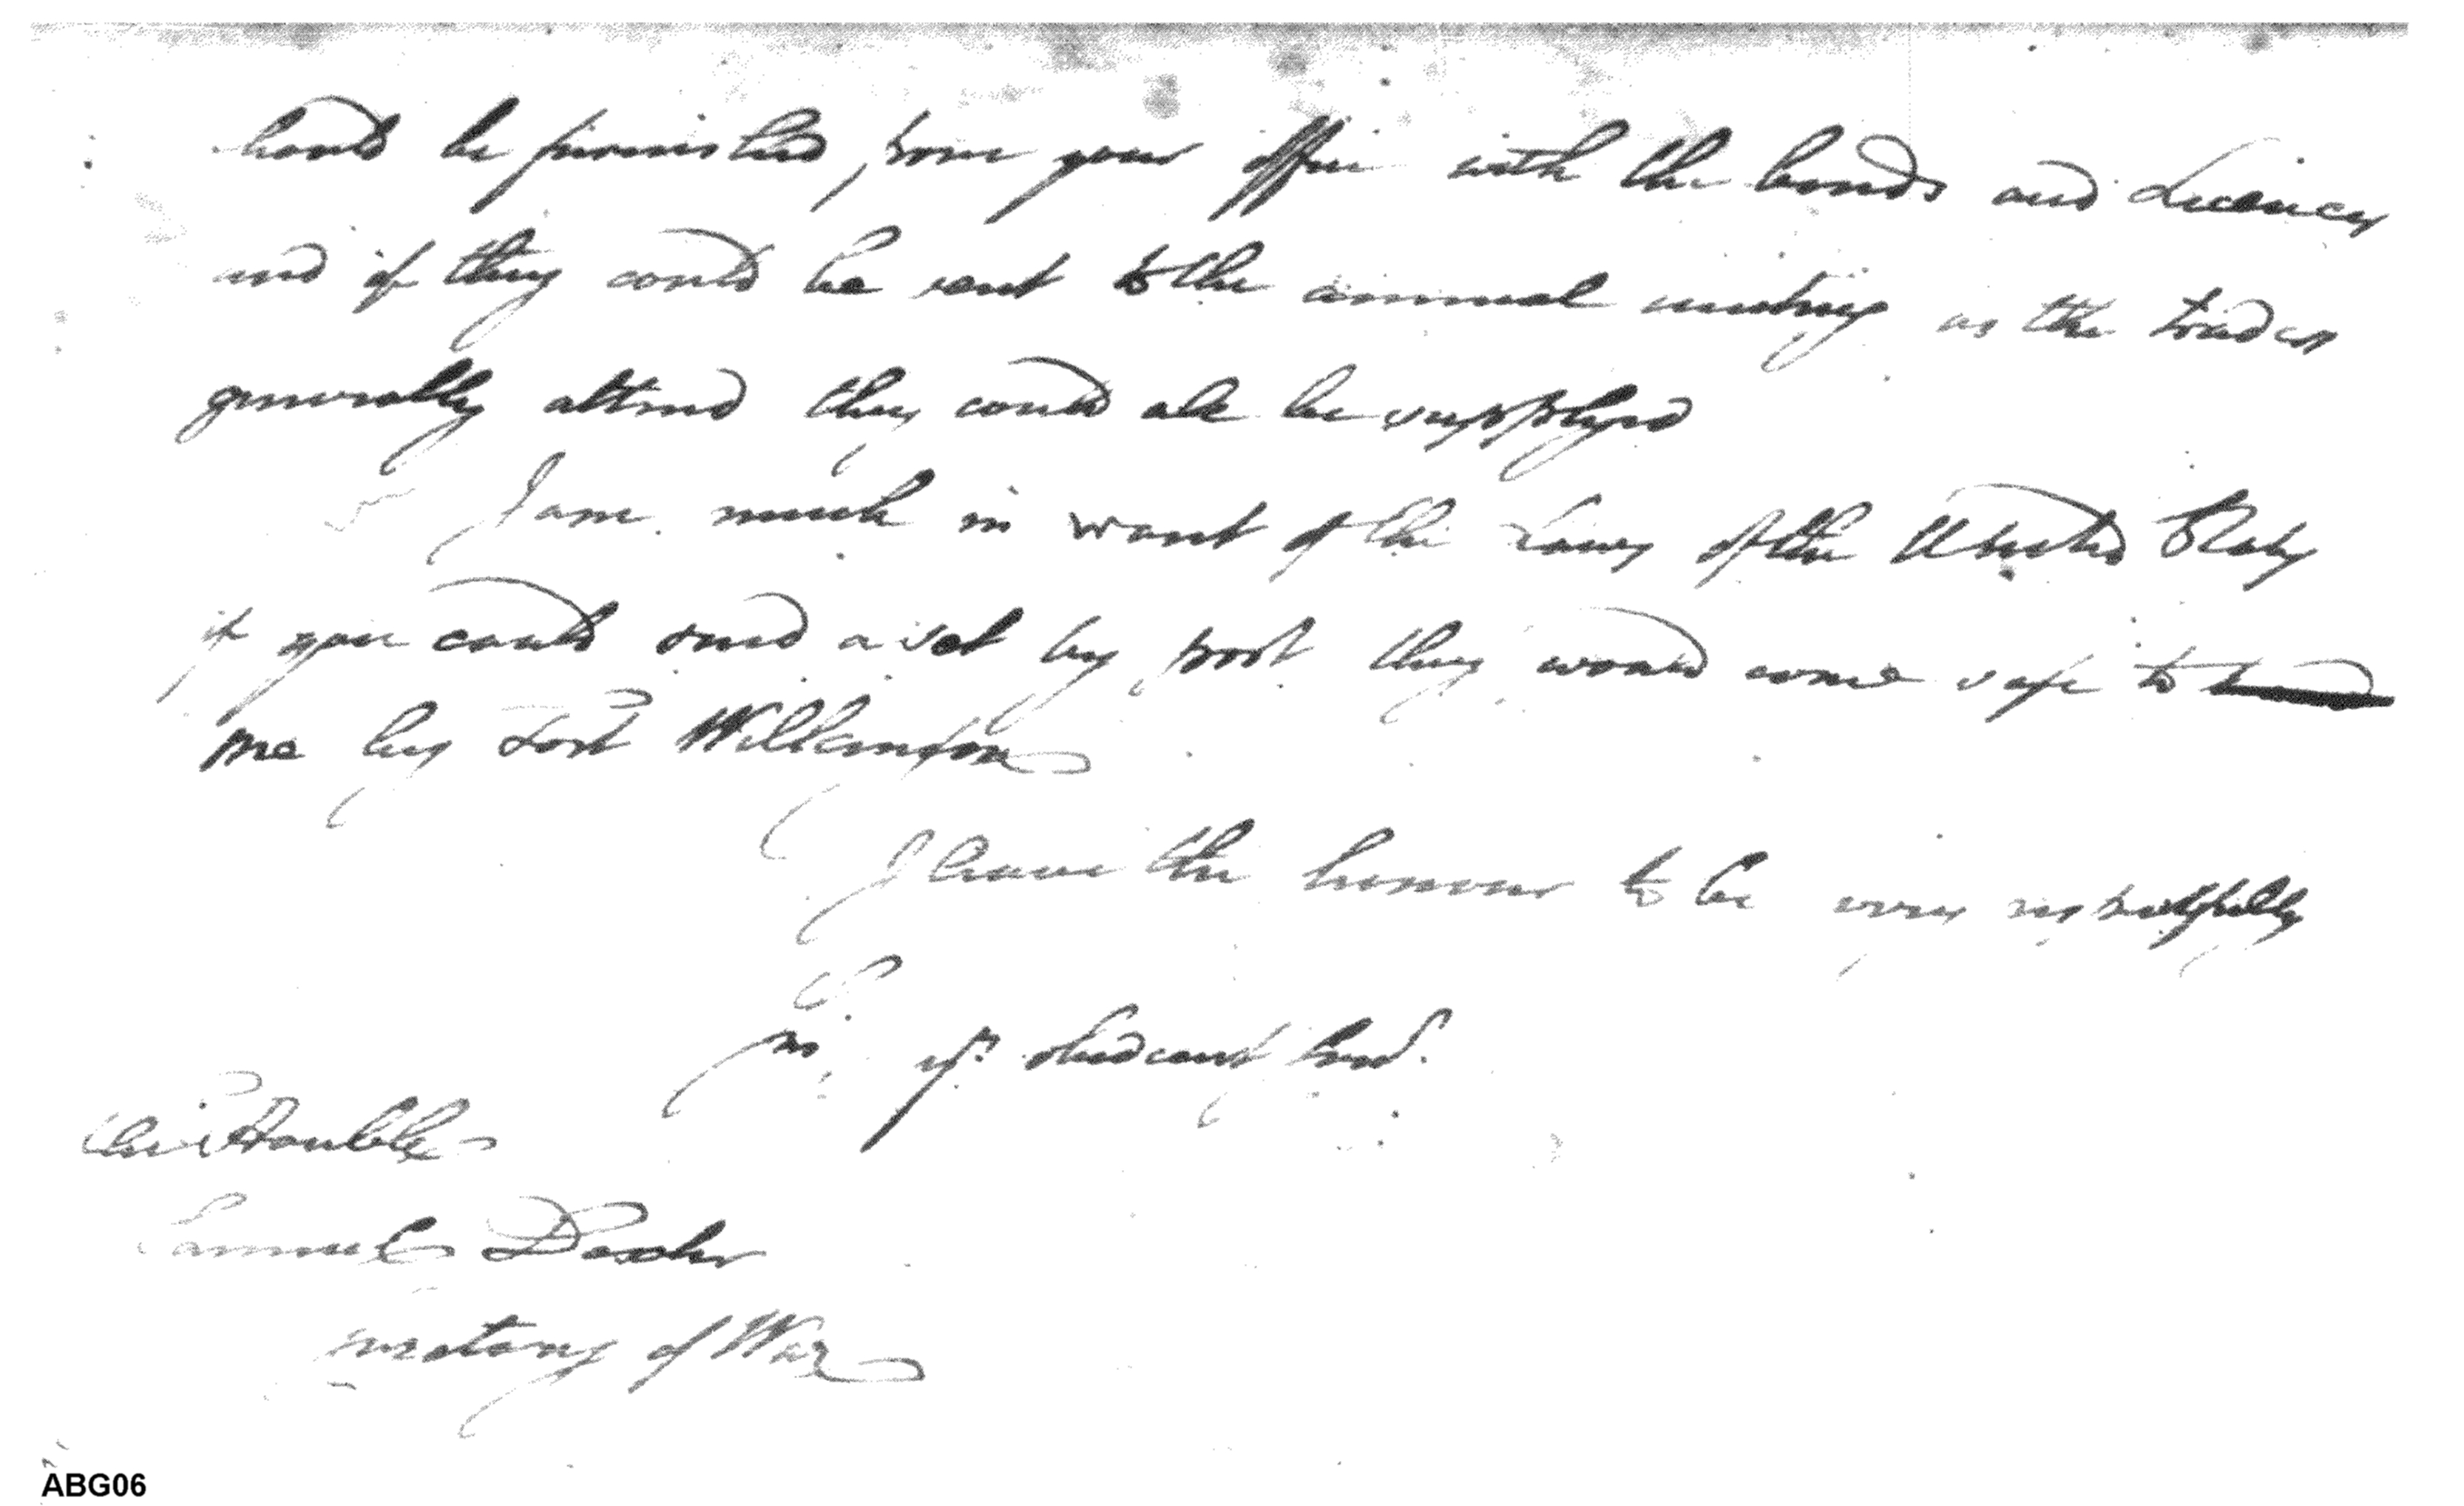 be furnished, from your office with the bonds and Licences
and if they could be sent to the annual meeting as the traders
generally attend they could all be supplyed
I am much in want of the Laws of the United States
if you could send a set by post they would come safe to
me by Fort Wilkinson
I have the honour to be very respectfully
Sir, yr. obedient Servt.
The Honble
Samuel Dexter
secretary of War
ABG06